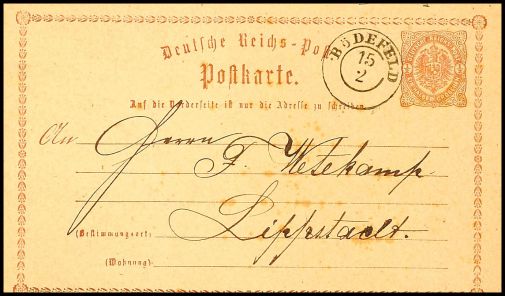 Deutsche Reichs-Post
Postkarte.
BÖDEFELD
15
2
Auf die Vorderseite ist nur die Adresse zu schreiben.
An Herrn F. Wetekamp
Lippstadt.
(Bestimmungsort)
(Wohnung)